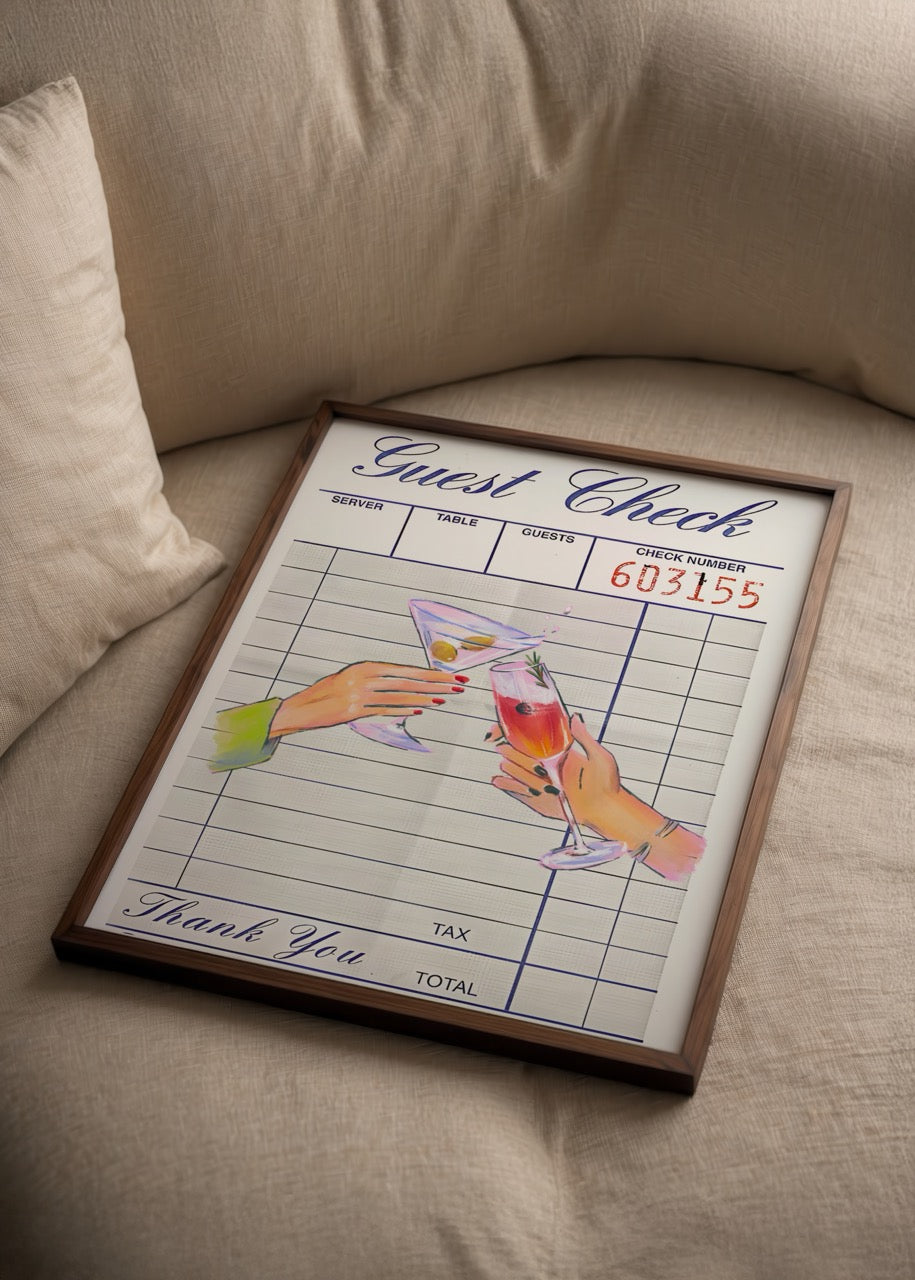 Guest Check
SERVER TABLE GUESTS CHECK NUMBER
603155
TAX
Thank You
TOTAL